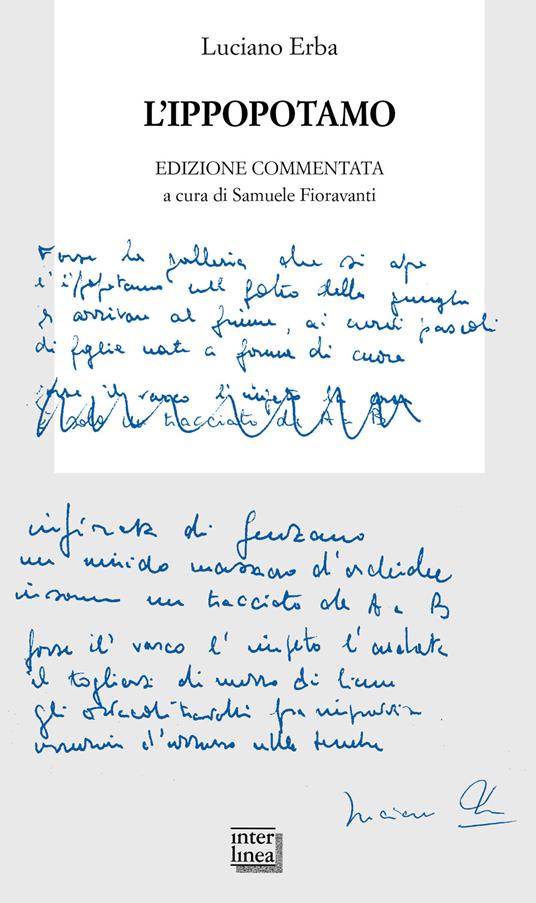 Luciano Erba
L'IPPOPOTAMO
EDIZIONE COMMENTATA
a cura di Samuele Fioravanti
Forse la galleria che si apre
l'ippopotamo nel folto della giungla
per arrivare al fiume, ai curvi pascoli
di foglie nate a forma di cuore
forse il varco l'impeto
solo un tracciato da A a B
infiorata di Genzano
un nimido massacro d'orchidee
insomma un tracciato da A a B
forse il varco l' impeto l'
il togliersi di mezzo di liane
gli ostacoli travolti fra
d'azzurro nelle tenebre
Luciano
inter
linea